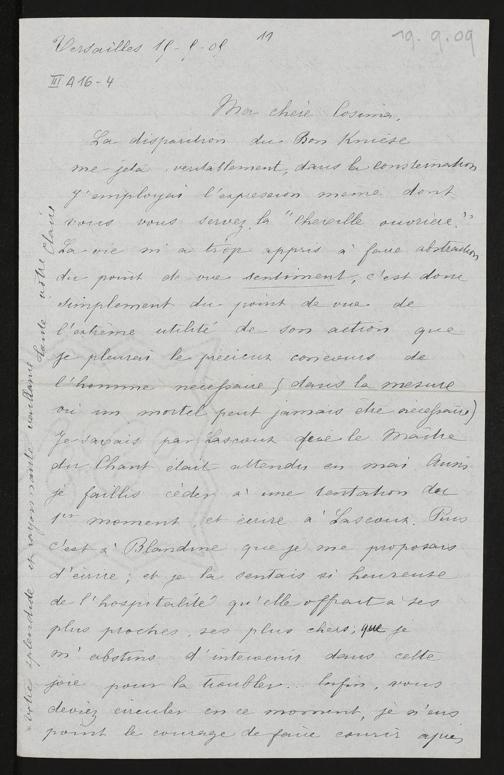 Versailles 19-9-09 11 19.9.09
III A 16-4
Ma chère Cosima,
La disparition du Bon Kniese
me jeta véritablement, dans la consternation
J'employai l'expression même dont
vous vous servez, la "cheville ouvrière."
La vie m'a trop appris à faire abstraction
du point de vue sentiment, c'est donc
simplement du point de vue de
l'extrême utilité de son action que
je pleurai le précieux concours de
l'homme nécessaire (dans la mesure
où un mortel peut jamais être nécessaire)
Je savais par Lascoux que le Maître
du Chant était attendu en mai Aussi
je faillis céder à une tentation du
1er moment, et écrire à Lascoux. Puis
c'est à Blandine que je me proposais
d'écrire; et je la sentais si heureuse
de l'hospitalité qu'elle offrait à ses
plus proches, ses plus chers, que je
m'abstins d'intervenir dans cette
joie pour la troubler... Enfin, vous
deviez circuler en ce moment, je n'eus
point le courage de faire courir après
votre splendide et rayonnante vaillance
tante votre Claire